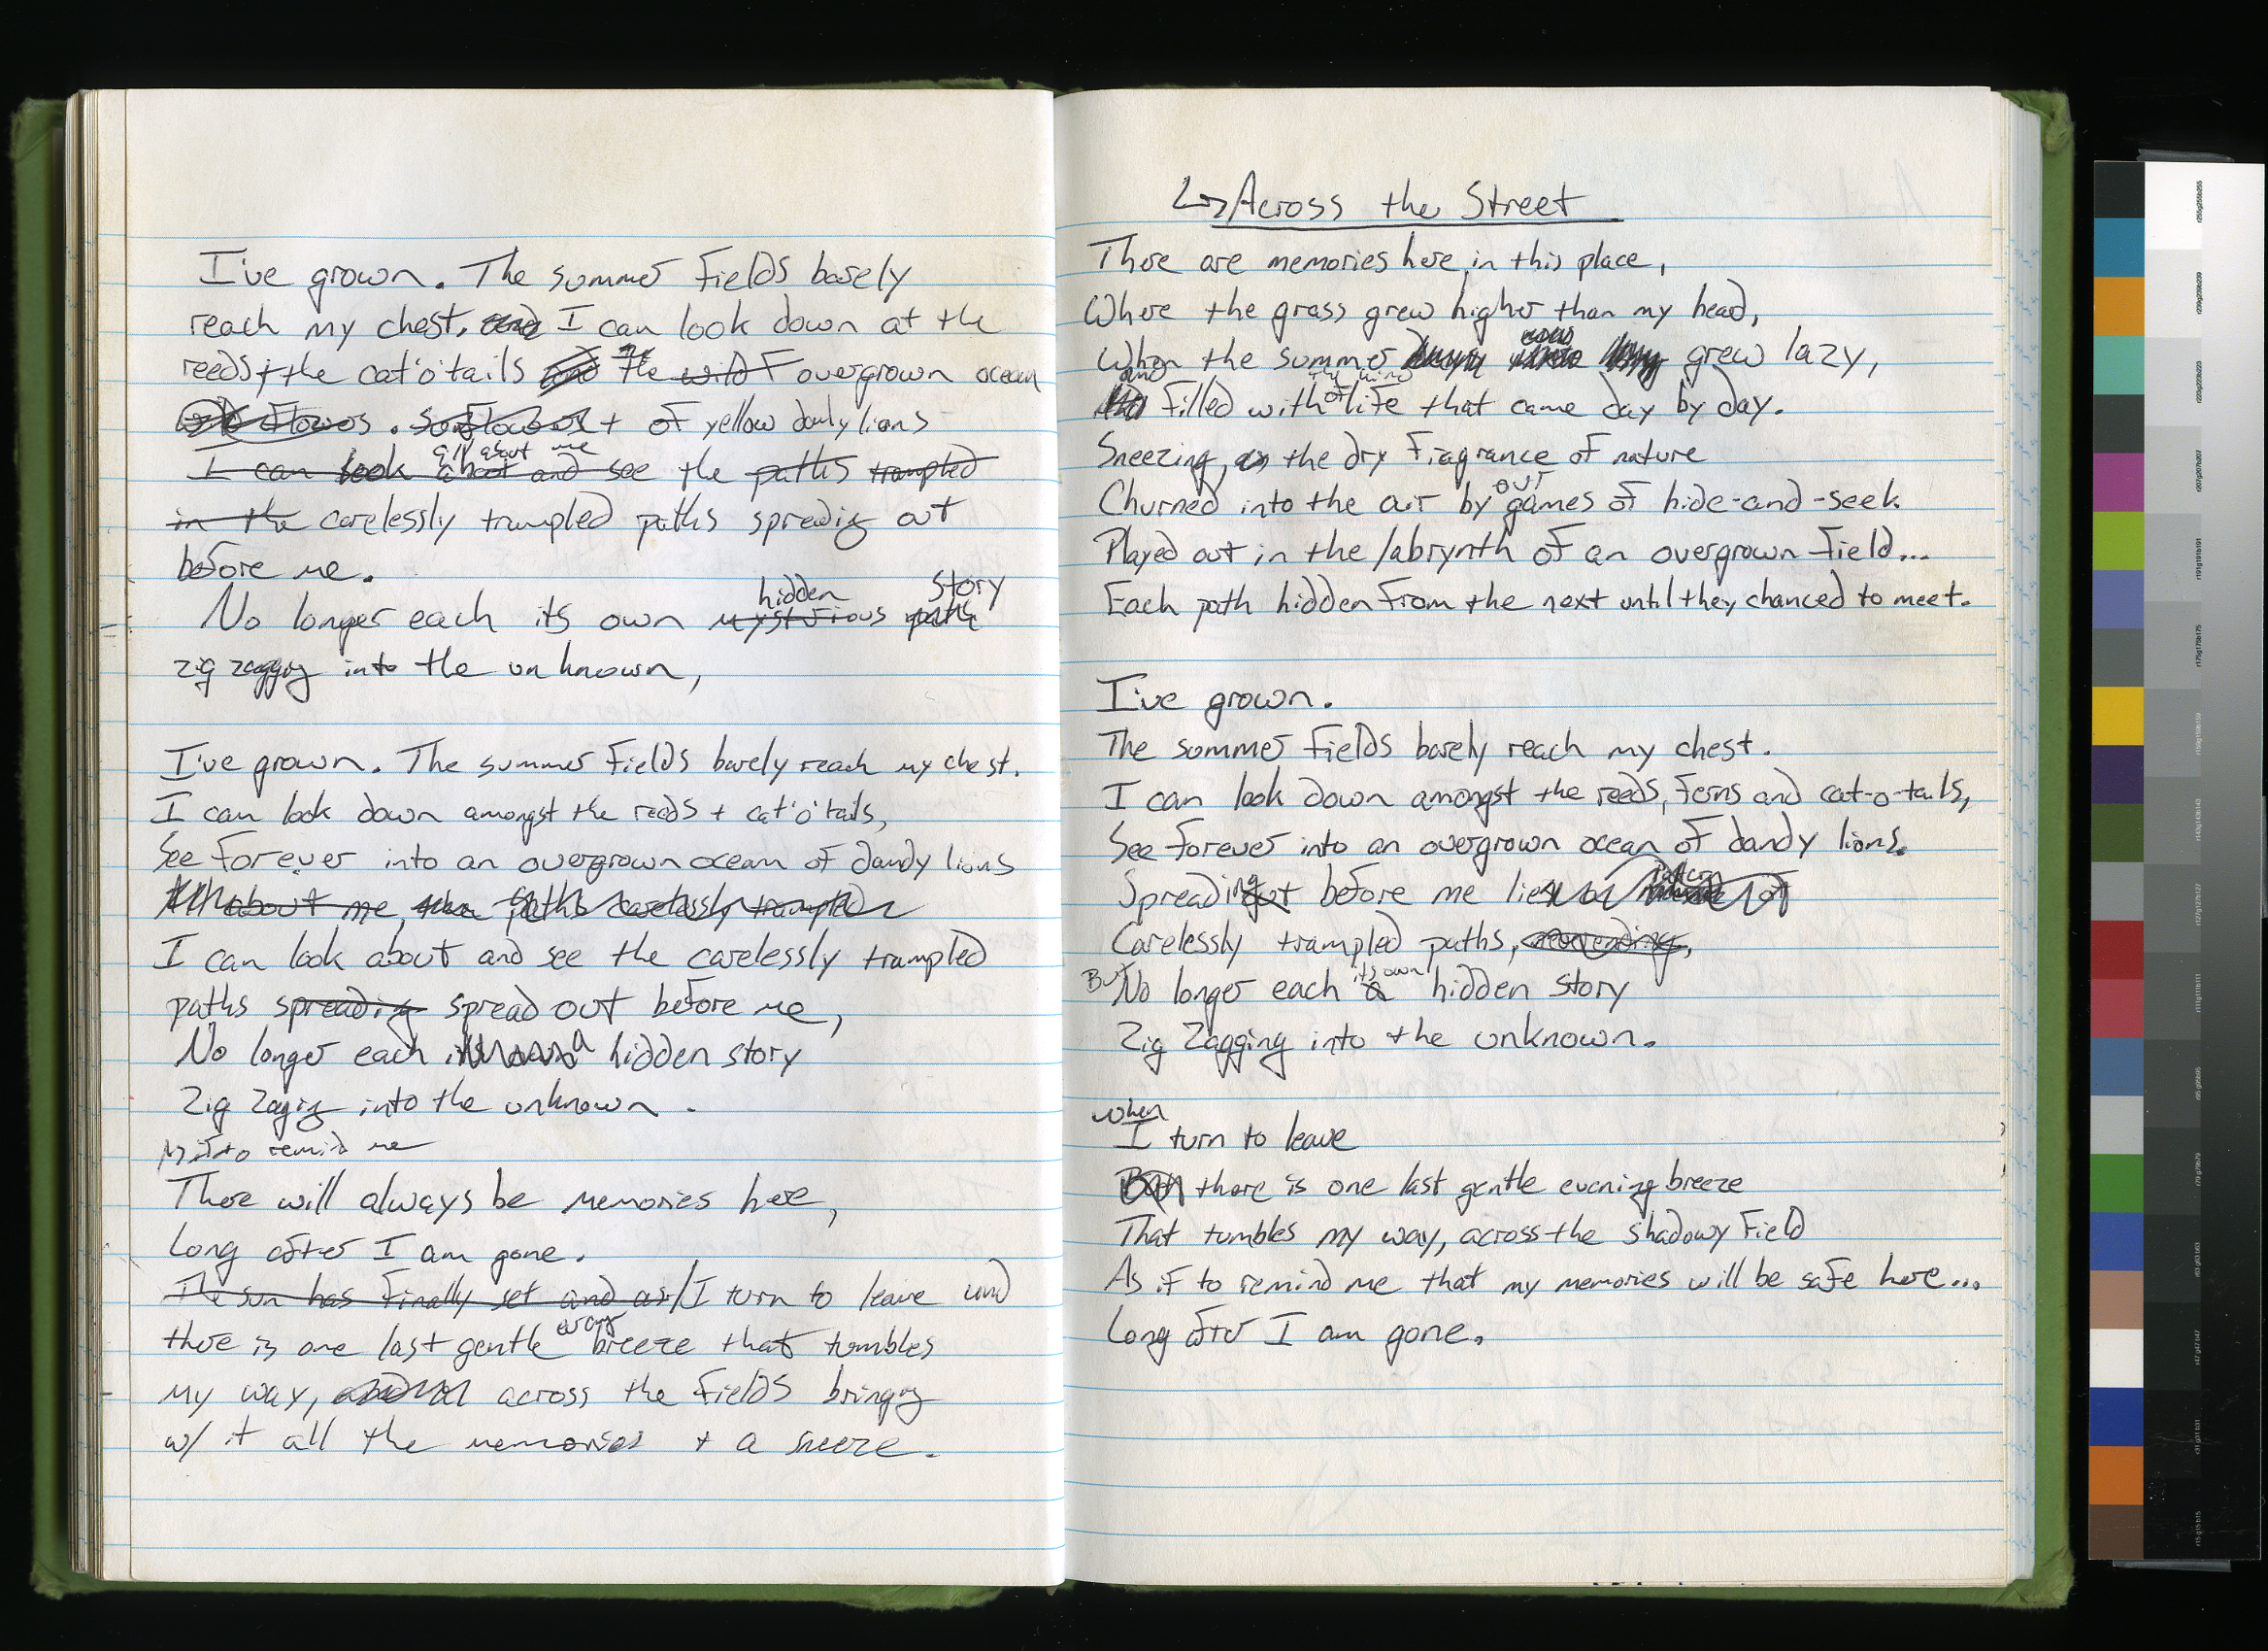 I've grown. The summer fields barely
reach my chest. and I can look down at the
reeds + the cat'o'tails and the wild overgrown ocean
flowers. sunflowers + of yellow dandy lions
all about me
I can look about and see the paths trampled
in the carelessly trampled paths spreading out
before me.
hidden story
No longer each its own mysterious paths
zig zagging into the unknown,
I've grown. The summer fields barely reach my chest.
I can look down amongst the reeds + cat'o'tails,
See forever into an overgrown ocean of dandy lions
All about me, paths carelessly trampled
I can look about and see the carelessly trampled
paths spreading spread out before me,
No longer each its own a hidden story
Zig Zaging into the unknown.
As if to remind me
There will always be memories here,
Long after I am gone.
The sun has finally set and air/I turn to leave and
evening
there is one last gentle breeze that tumbles
my way, across the fields bringing
w/ it all the memories + a sneeze.
↳Across the Street
There are memories here in this place,
Where the grass grew higher than my head,
When the summer grew lazy,
and the kind
filled with of life that came day by day.
Sneezing, as the dry fragrance of nature
our
Churned into the air by games of hide-and-seek
Played out in the labrynth of an overgrown field...
Each path hidden from the next until they chanced to meet.
I've grown.
The summer fields barely reach my chest.
I can look down amongst the reeds, ferns and cat-o-tails,
See forever into an overgrown ocean of dandy lions.
pattern
Spreading out before me lies
Carelessly trampled paths, neverending,
its own
But No longer each a hidden story
Zig Zagging into the unknown.
When
I turn to leave
But there is one last gentle evening breeze
That tumbles my way, across the shadowy field
As if to remind me that my memories will be safe here...
Long after I am gone.